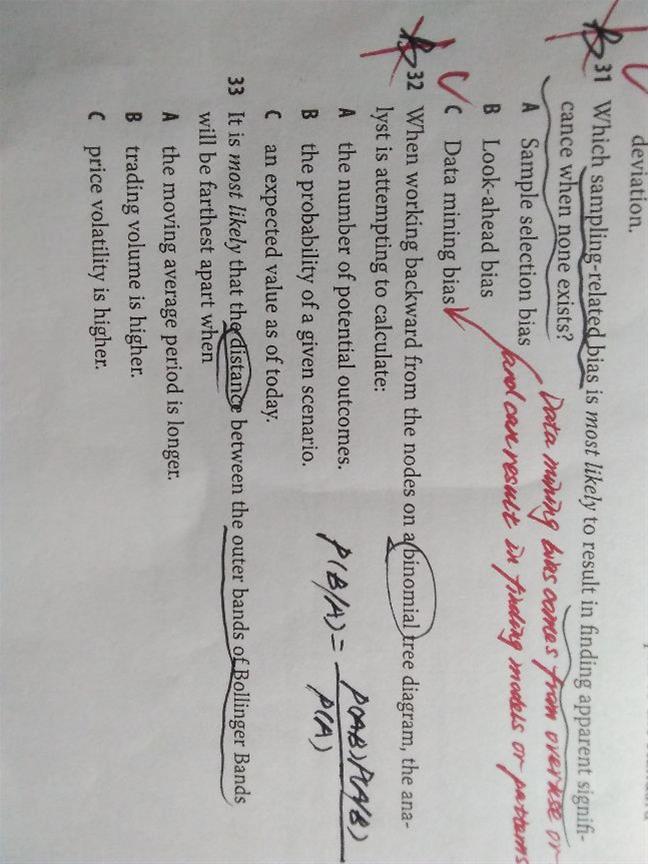 deviation.
31 Which sampling-related bias is most likely to result in finding apparent signifi-
cance when none exists?
A Sample selection bias
B Look-ahead bias
C Data mining bias
Data mining bias comes from overuse or
and can result in finding models or patterns
B 32 When working backward from the nodes on a binomial tree diagram, the ana-
lyst is attempting to calculate:
A the number of potential outcomes.
B the probability of a given scenario.
C an expected value as of today.
P(B/A) = P(AB)P(A/B)
P(A)
33 It is most likely that the distance between the outer bands of Bollinger Bands
will be farthest apart when
A the moving average period is longer.
B trading volume is higher.
C price volatility is higher.